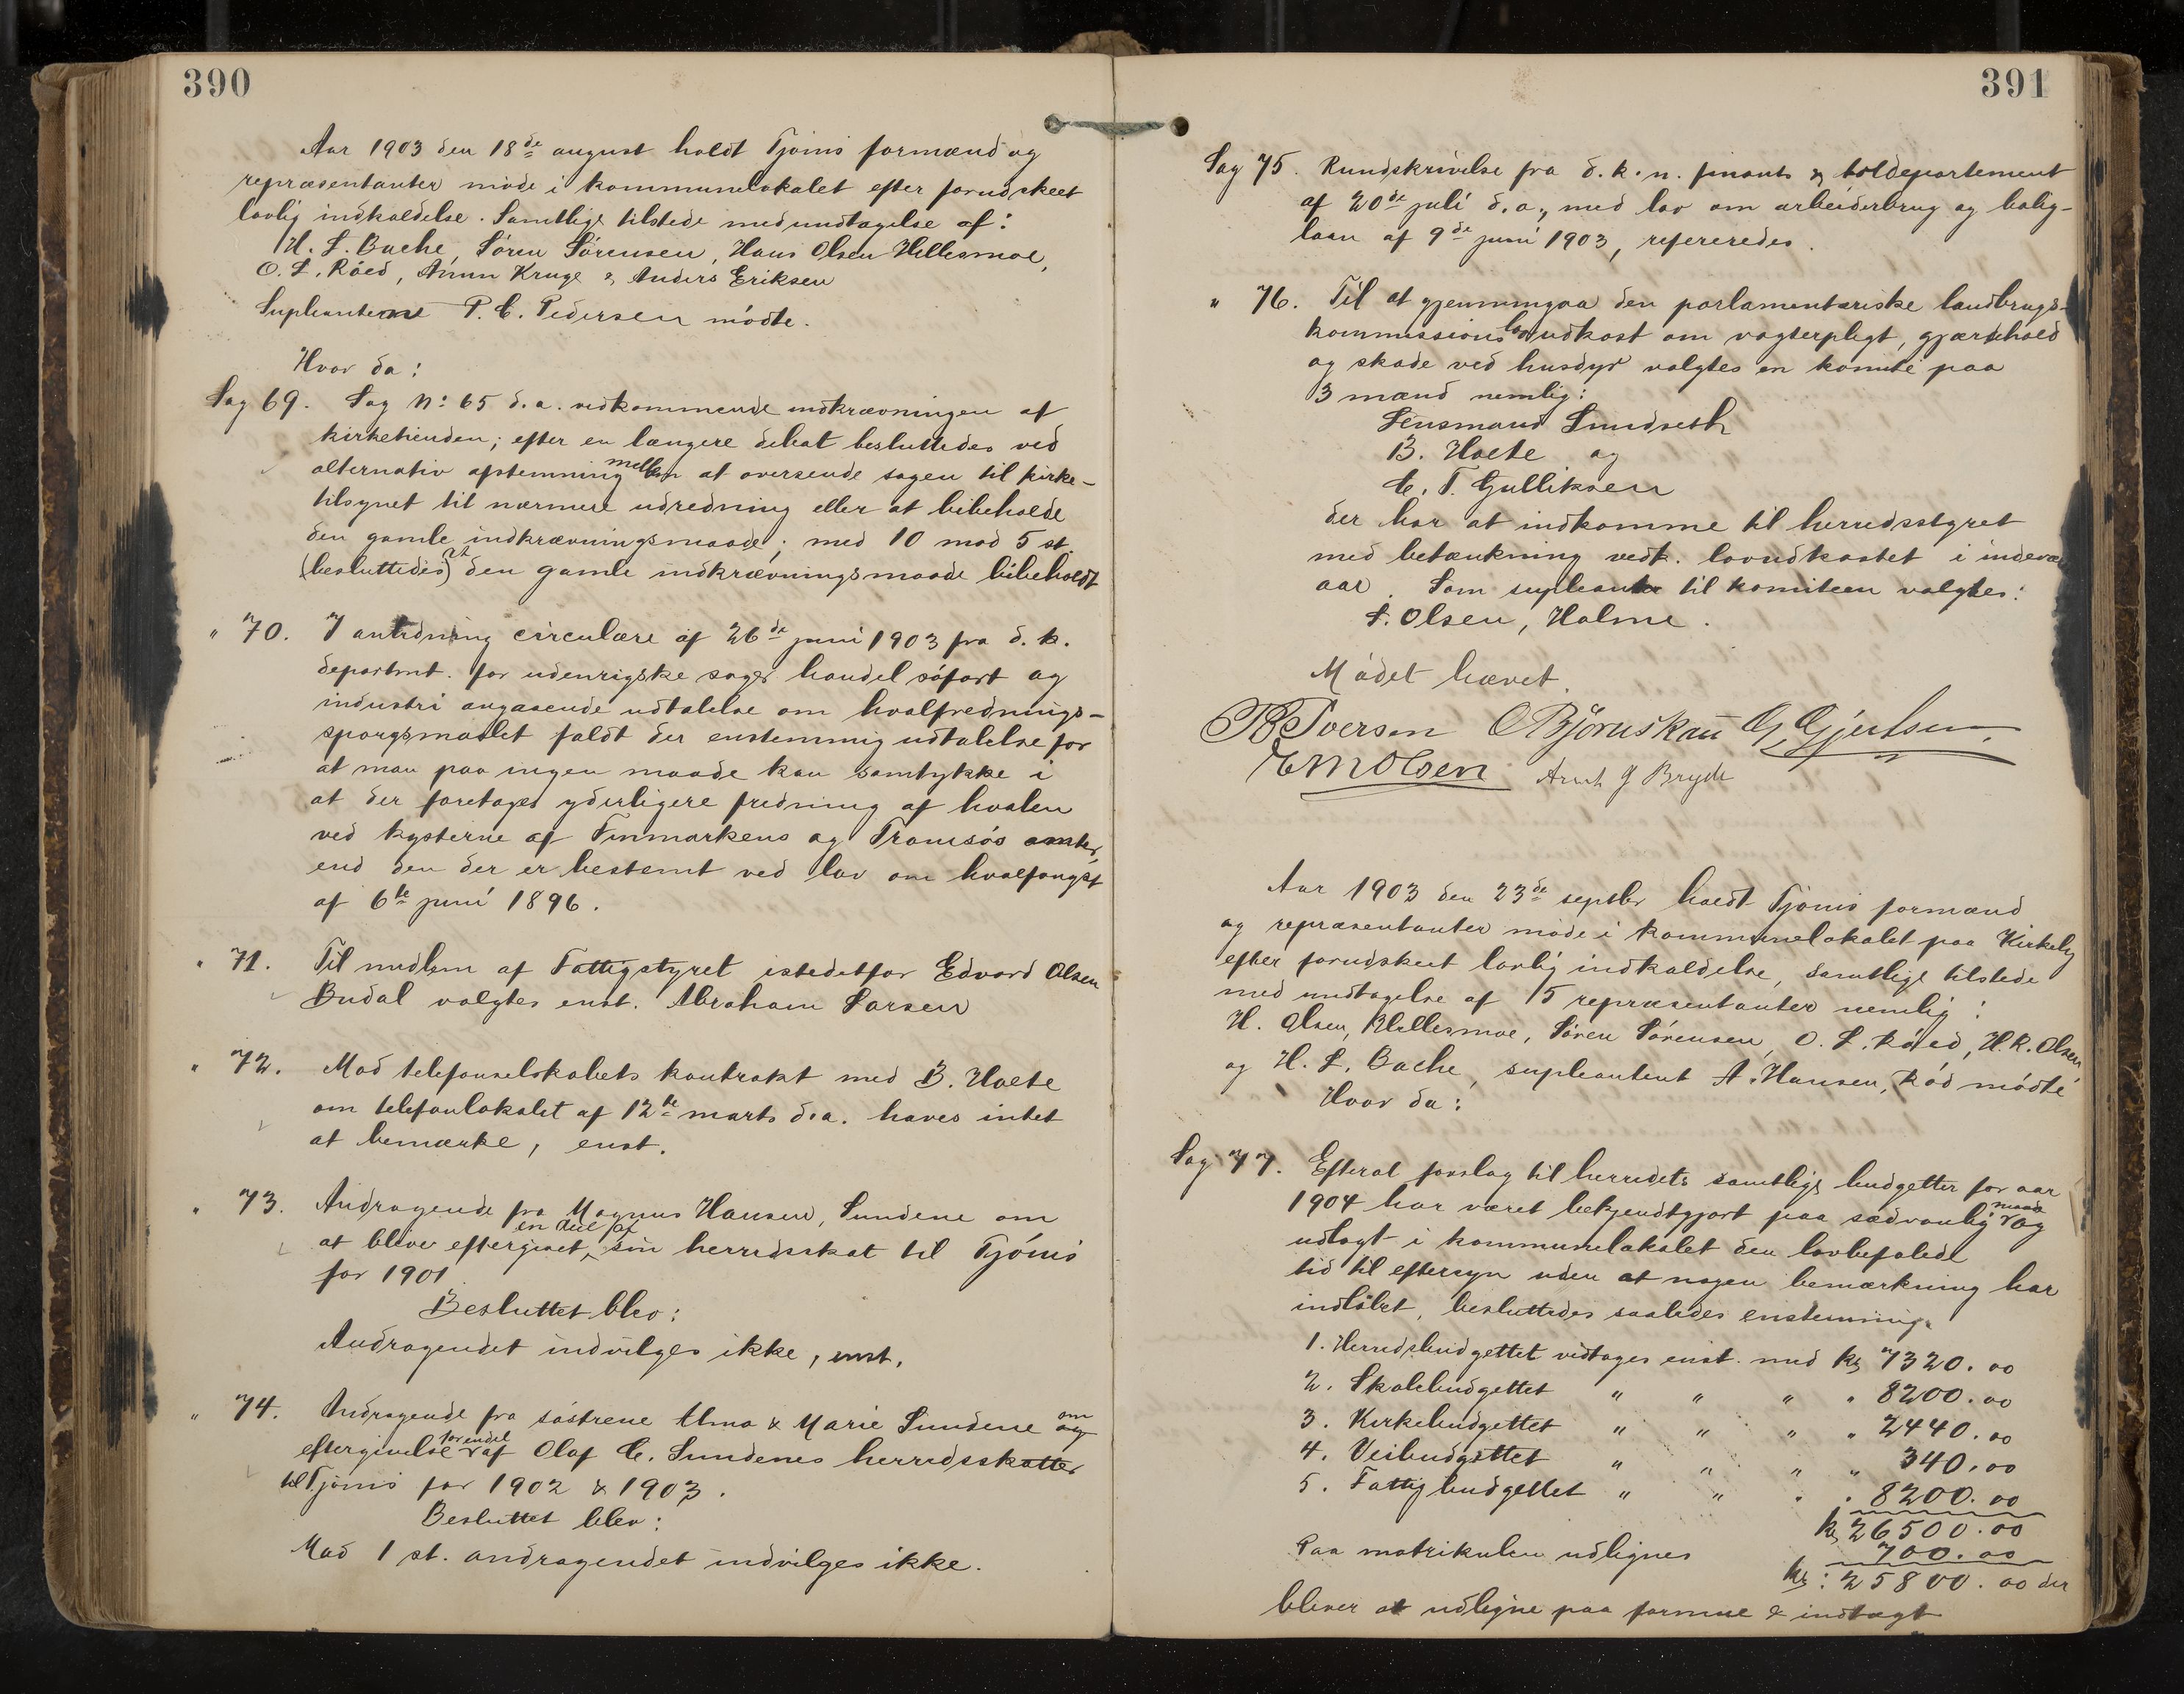 390
Aar 1903 den 18de august holdt Tjømø formænd og
repræsentanter møde i kommunelokalet efter forudskeet
lovlig indkaldelse. Samtlige tilstede med undtagelse af:
H. L. Bache, Søren Sørensen, Hans Olsen Hellesmoe,
O. L. Røed, Anun Kruge & Anders Eriksen
Supleanterne P. C. Pedersen mødte.
Hvor da:
Sag 69. Sag No 65 d.a. vedkommende indkrævningen af
kirketienden; efter en længere debat besluttedes ved
alternativ afstemning mellem at oversende sagen til kirke-
tilsynet til nærmere udredning eller at bibeholde
den gamle indkrævningsmaade; med 10 mod 5 st
(besluttedes) at den gamle indkrævningsmaade bibeholdt
" 70. I anledning circulære af 26de juni 1903 fra d. k.
departmt. for udenrigske sager handel søfart og
industri angaaende udtalelse om hvalfrednings-
spørgsmaalet faldt der enstemmig udtalelse for
at man paa ingen maade kan samtykke i
at der foretages yderligere fredning af hvalen
ved kysterne af Finmarkens og Tromsøs amter,
end den der er bestemt ved lov om hvalfangst
af 6te juni 1896.
" 71. Til medlem af Fattigstyret istedetfor Edvard Olsen
Budal valgtes enst. Abraham Larsen
" 72. Mod telefonselskabets kontrakt med B. Holte
om telefonlokalet af 12te marts d.a. haves intet
at bemærke, enst.
" 73. Andragende fra Magnus Hansen, Sundene om
at blive eftergivet, en deel af sin herredsskat til Tjømø
for 1901
Besluttet blev:
Andragendet indvilges ikke, enst.
" 74. Andragende fra søstrene Alma & Marie Sundene om
eftergivelse for endel af Olaf C. Sundenes herredsskatter
til Tjømø for 1902 & 1903.
Besluttet blev:
Mod 1 st. andragendet indvilges ikke.
391
Sag 75. Rundskrivelse fra d. k. n. finants & tolddepartement
af 20de juli d. a., med lov om arbeiderbrug og bolig-
laan af 9de juni 1903, refereredes.
" 76. Til at gjennemgaa den parlamentariske landbrugs-
kommissions lovudkast om vogterpligt, gjærdehold
og skade ved husdyr valgtes en komite paa
3 mænd nemlig:
Lensmand Sundseth
B. Holte og
C. T. Gulliksen
der har at indkomme til herredsstyret
med betænkning vedk. lovudkastet i indevæ
aar. Som supleant til komiteen valgtes:
S. Olsen, Holme.
Mødet hævet.
B Iversen O Bjørnskau G. Gjertsen
E M Olsen Arnt J Bryde
Aar 1903 den 23de septbr holdt Tjømø formænd
og repræsentanter møde i kommunelokalet paa Kirkely
efter forudskeet lovlig indkaldelse, samtlige tilstede
med undtagelse af 5 repræsentanter nemlig:
H. Olsen, Hellesmoe, Søren Sørensen, O. L. Røed, H. K. Olsen
og H. L. Bache, supleantent A. Hansen, Rød mødte
Hvor da:
Sag 77. Efterat forslag til herredets samtlige budgetter for aar
1904 har været bekjendtgjort paa sædvanlig maade og
udlagt i kommunelokalet den lovbefalede
tid til eftersyn uden at nogen bemærkning har
indløbet, besluttedes saaledes enstemmig.
1. Herredsbudgettet vedtages enst. med kr 7320.00
2. Skolebudgettet " " " " 8200.00
3. Kirkebudgettet " " " " 2440.00
4. Veibudgettet " " " " 340.00
5. Fattigbudgettet " " " " 8200.00
kr 26500.00
Paa matrikulen udlignes 700.00
kr: 25800.00 der
bliver at udligne paa formue & indtægt